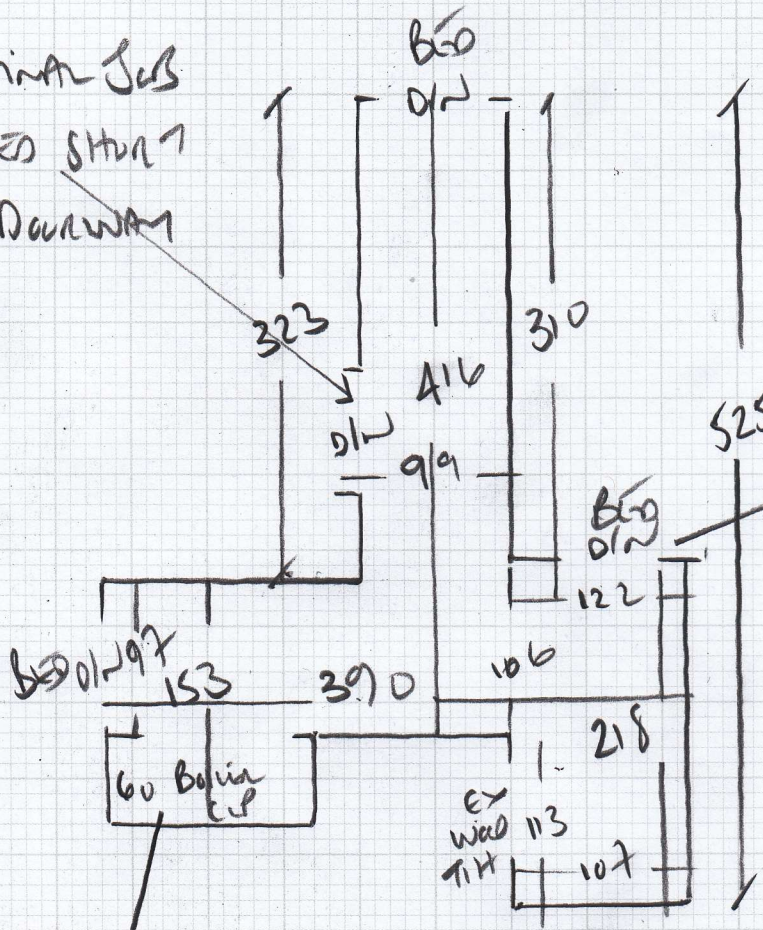 INAL JOB
ED SHORT
DOORWAY
BED
D/W
323
310
416
D/W
99
525
BED
D/W
122
BED D/W 97
153
390
106
218
60 Boiler
CUP
EX
113
107